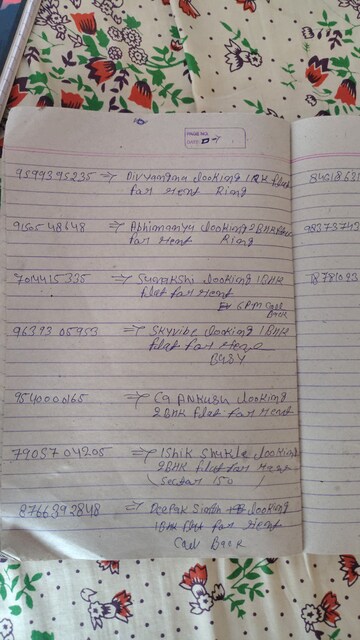 PAGE NO.
DATE
9599395235 ⇒ Divyangna looking 1RK flat
for rent Ring
9150548648 ⇒ Abhimanyu looking 2BHK
for rent Ring
7014415335 ⇒ Surakshi looking 1BHK
flat for rent
6 PM Call
Back
96393 05953 ⇒ Skyvibe looking 1BHK
flat for
Busy
⇒ Ca Ankush looking
2BHK flat for rent
7905704205 ⇒ Ishik Shukla looking
2BHK flat for
(Sector 150)
8766392848 ⇒ Deepak Singh looking
1BHK flat for rent
Call Back